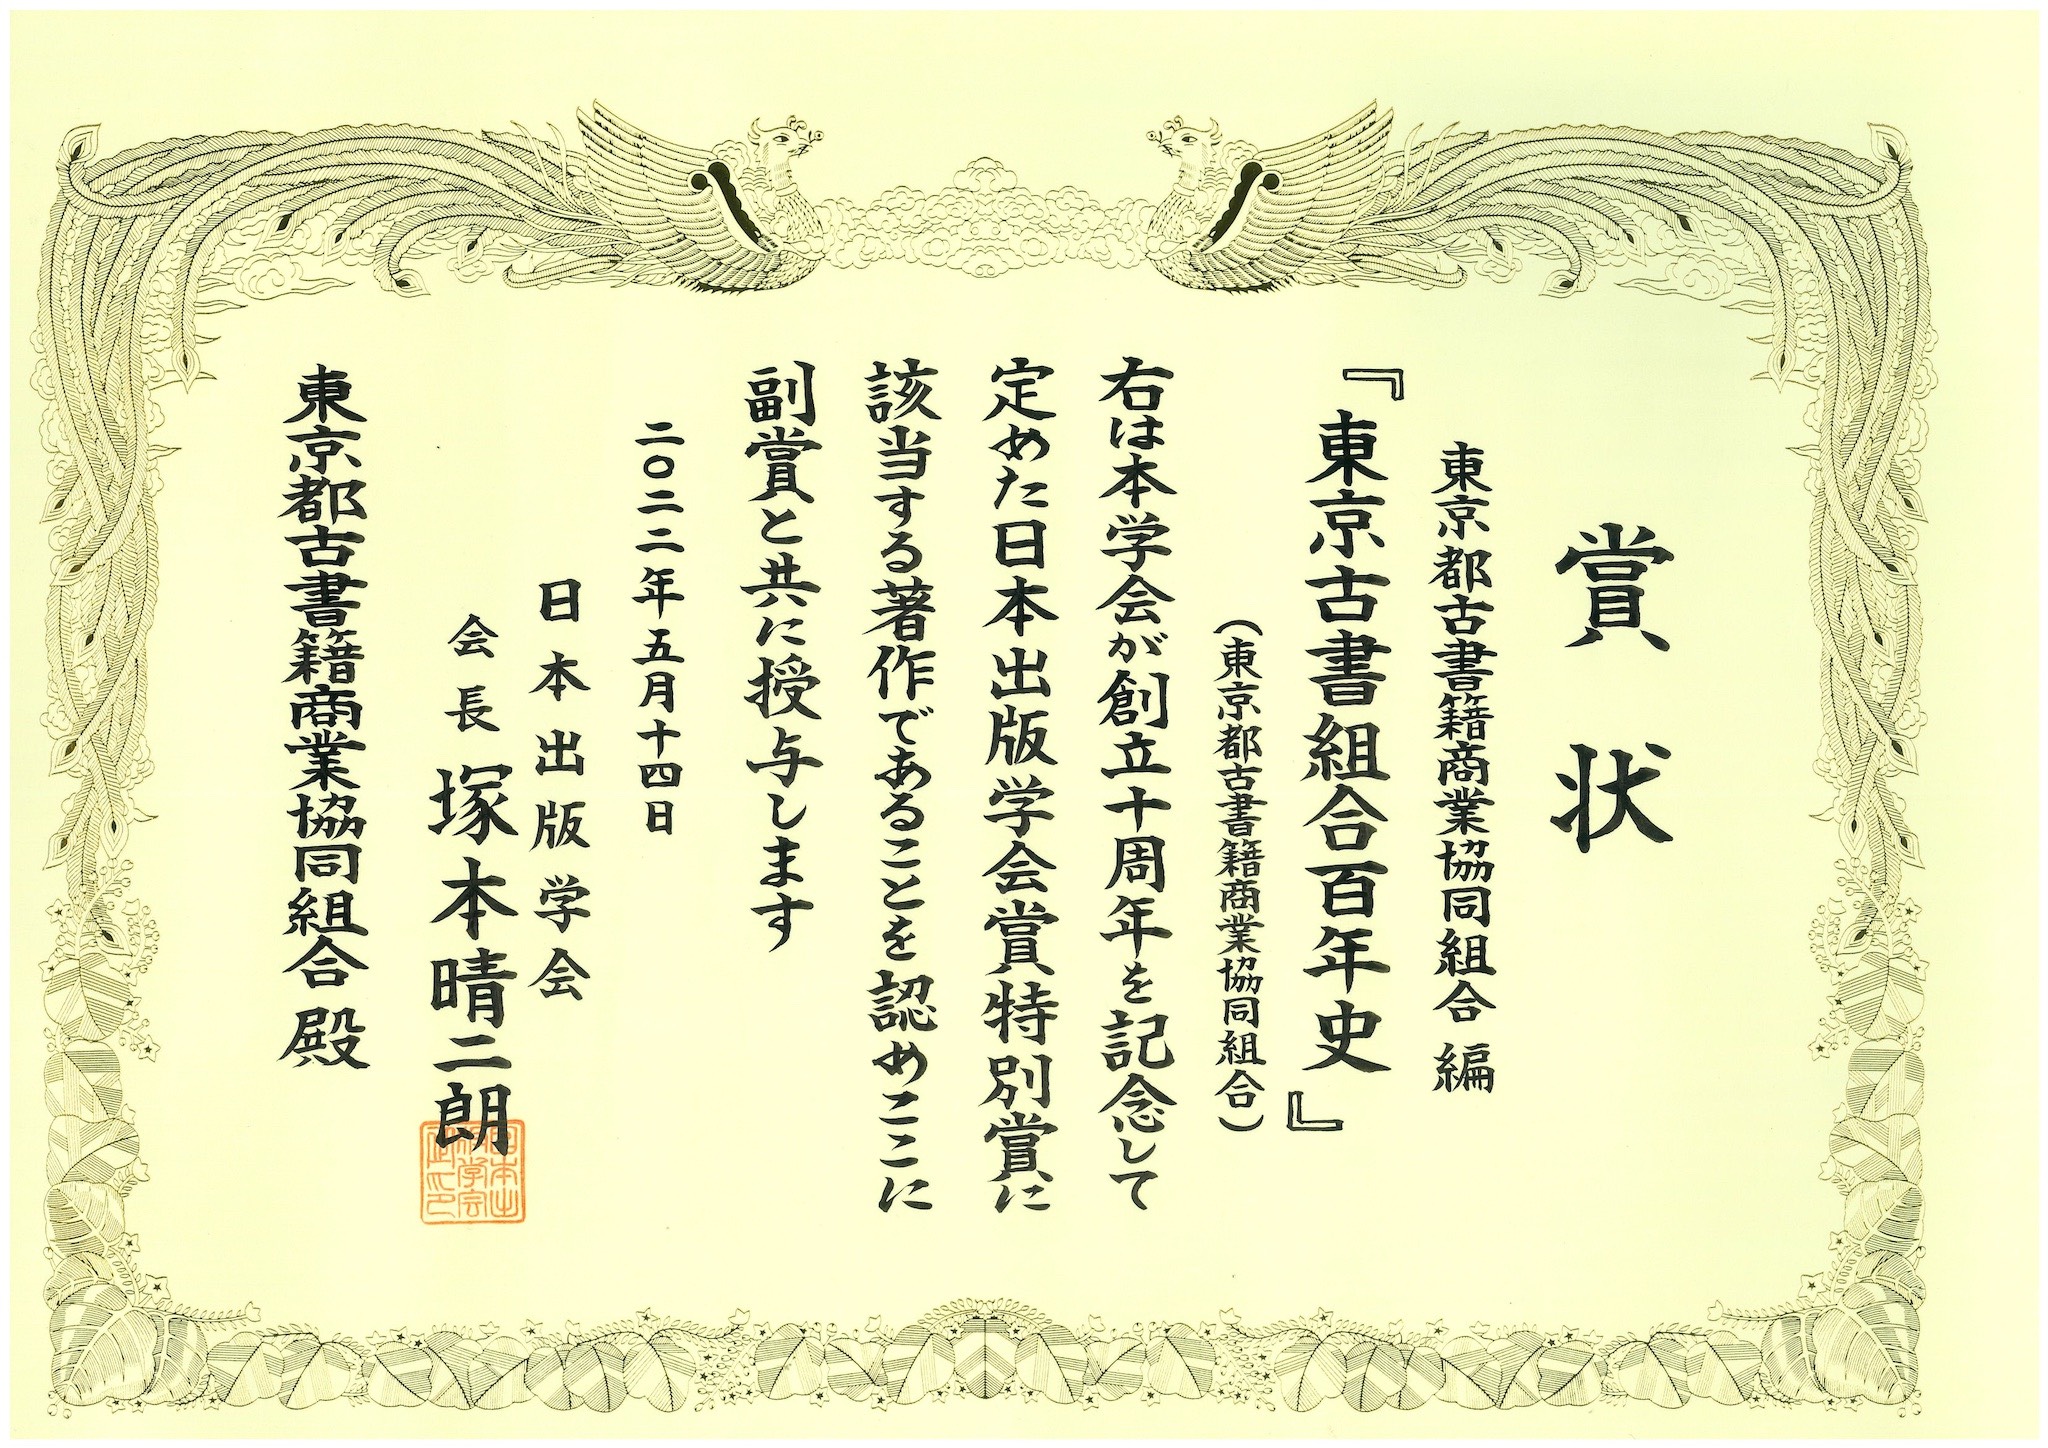 賞状
東京都古書籍商業協同組合 編
『東京古書組合百年史』
（東京都古書籍商業協同組合）
右は本学会が創立十周年を記念して
定めた日本出版学会賞特別賞に
該当する著作であることを認めここに
副賞と共に授与します
二〇二二年五月十四日
日本出版学会
会長 塚本晴二朗
東京都古書籍商業協同組合 殿